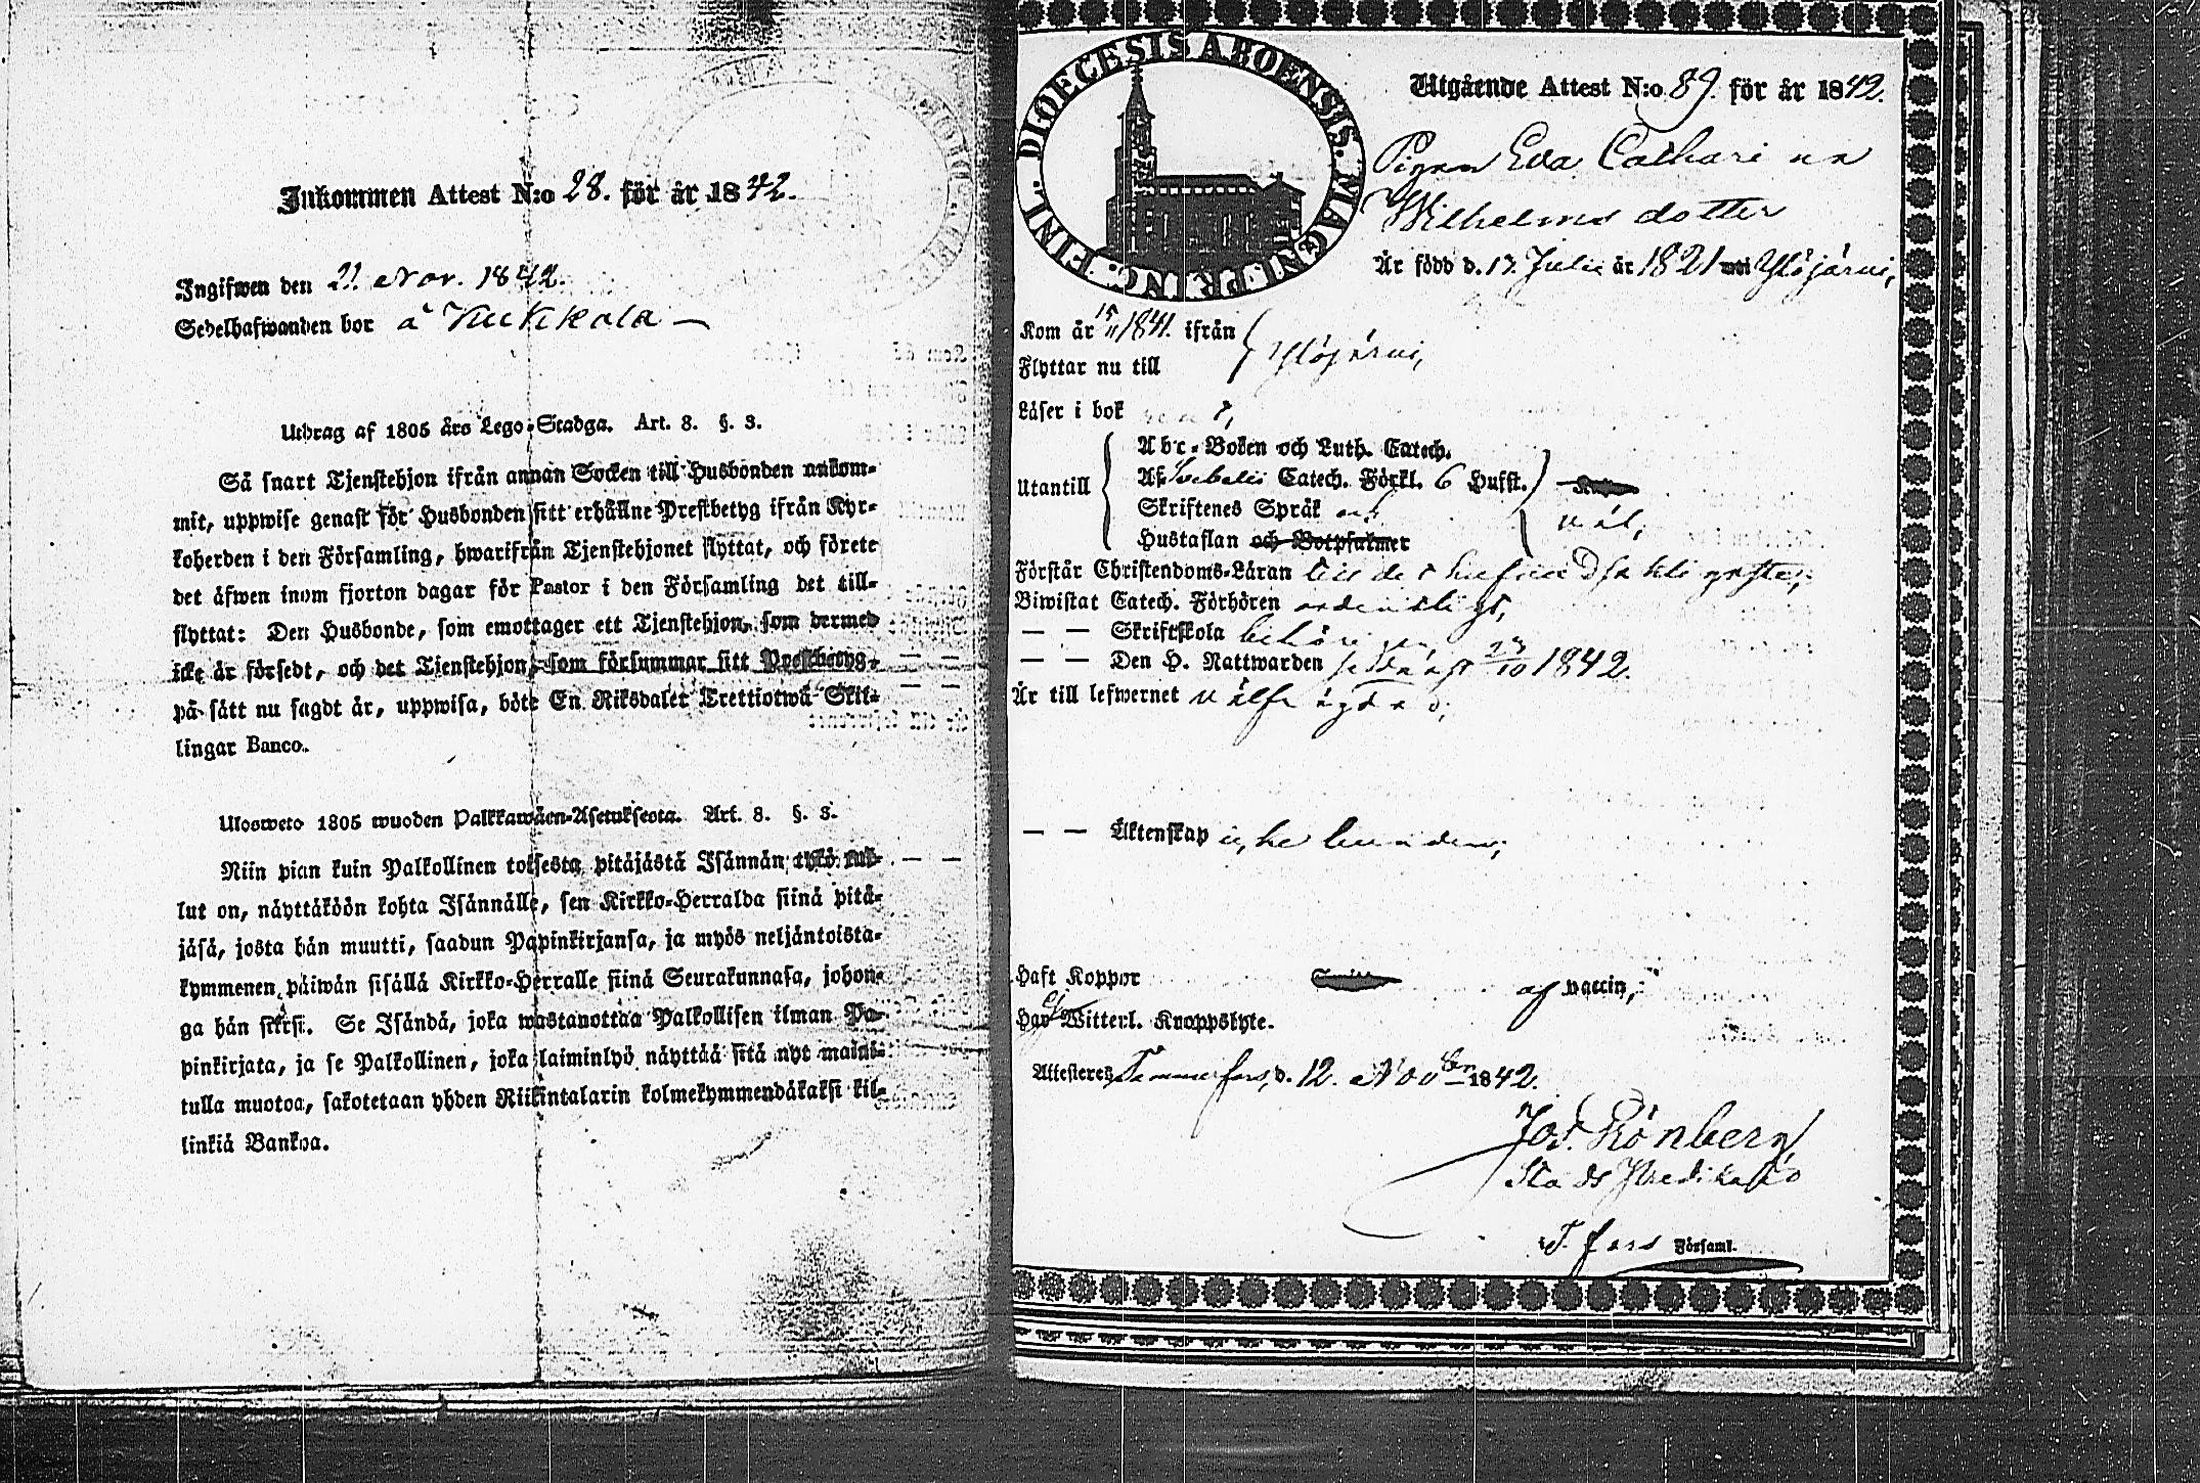 Inkommen Attest N:o 28. för år 1842.
Ingifwen den 21 Nov. 1842.
Sedelhafwanden bor å Kukkola —
Utdrag af 1805 års Lego-Stadga. Art. 8. §. 3.
Så snart Tjenstehjon ifrån annan Socken till Husbonden ankom-
mit, uppwise genast för Husbonden sitt erhållne Prestbetyg ifrån Kyr-
koherden i den Församling, hwarifrån Tjenstehjonet flyttat, och förete
det äfwen inom fjorton dagar för Pastor i den Församling det till-
flyttat: Den Husbonde, som emottager ett Tjenstehjon, som dermed
icke är försedt, och det Tjenstehjon, som försummar sitt Prestbetyg,
på sätt nu sagdt är, uppwisa, böte En Riksdaler Trettiotwå Skil-
lingar Banco.
Ulosweto 1805 wuoden Palkkawäen-Asetuksesta. Art. 8. §. 3.
Niin pian kuin Palkollinen toisesta pitäjästä Isännän tykö tul-
lut on, näyttäköön kohta Isännälle, sen Kirkko-Herralda siinä pitä-
jäsä, josta hän muutti, saadun Papinkirjansa, ja myös neljäntoista-
kymmenen päiwän sisällä Kirkko-Herralle siinä Seurakunnasa, johon-
ga hän siirsi. Se Isändä, joka wastanottaa Palkollisen ilman Pa-
pinkirjata, ja se Palkollinen, joka laiminlyö näyttää sitä nyt maini-
tulla muotoa, sakotetaan yhden Riikintalarin kolmekymmendäkaksi kil-
linkiä Bankoa.
DIOECESIS ABOENSIS. MAGN. PRINC. FINL.
Utgående Attest N:o 89. för år 1842.
Pigan Eva Catharina
Wilhelmsdotter
Är född d. 17. Julii år 1821 uti Ylöjärvi,
Kom år 15/11 1841. ifrån
Flyttar nu till
Ylöjärvi,
Läser i bok
Utantill
Abc-Boken och Luth. Catech.
Af Svebelii Catech. Förkl. 6 Hufst.
Skriftenes Språk och
Hustaflan och Botpsalmer
väl,
Förstår Christendoms-Läran till det hufvudsakligaste,
Biwistat Catech. Förhören ordentligt,
— — Skriftskola behörigen,
— — Den H. Nattwarden sednast 23/10 1842.
Är till lefwernet välfrägdad,
— — Äktenskap icke bunden,
Haft Koppor af vaccin,
Hay Witterl. Knappsbyte.
Attesteres Tammerfors, d. 12. Novber 1842.
Jos. Rönberg
Stads Predikant
i T. fors Församl.